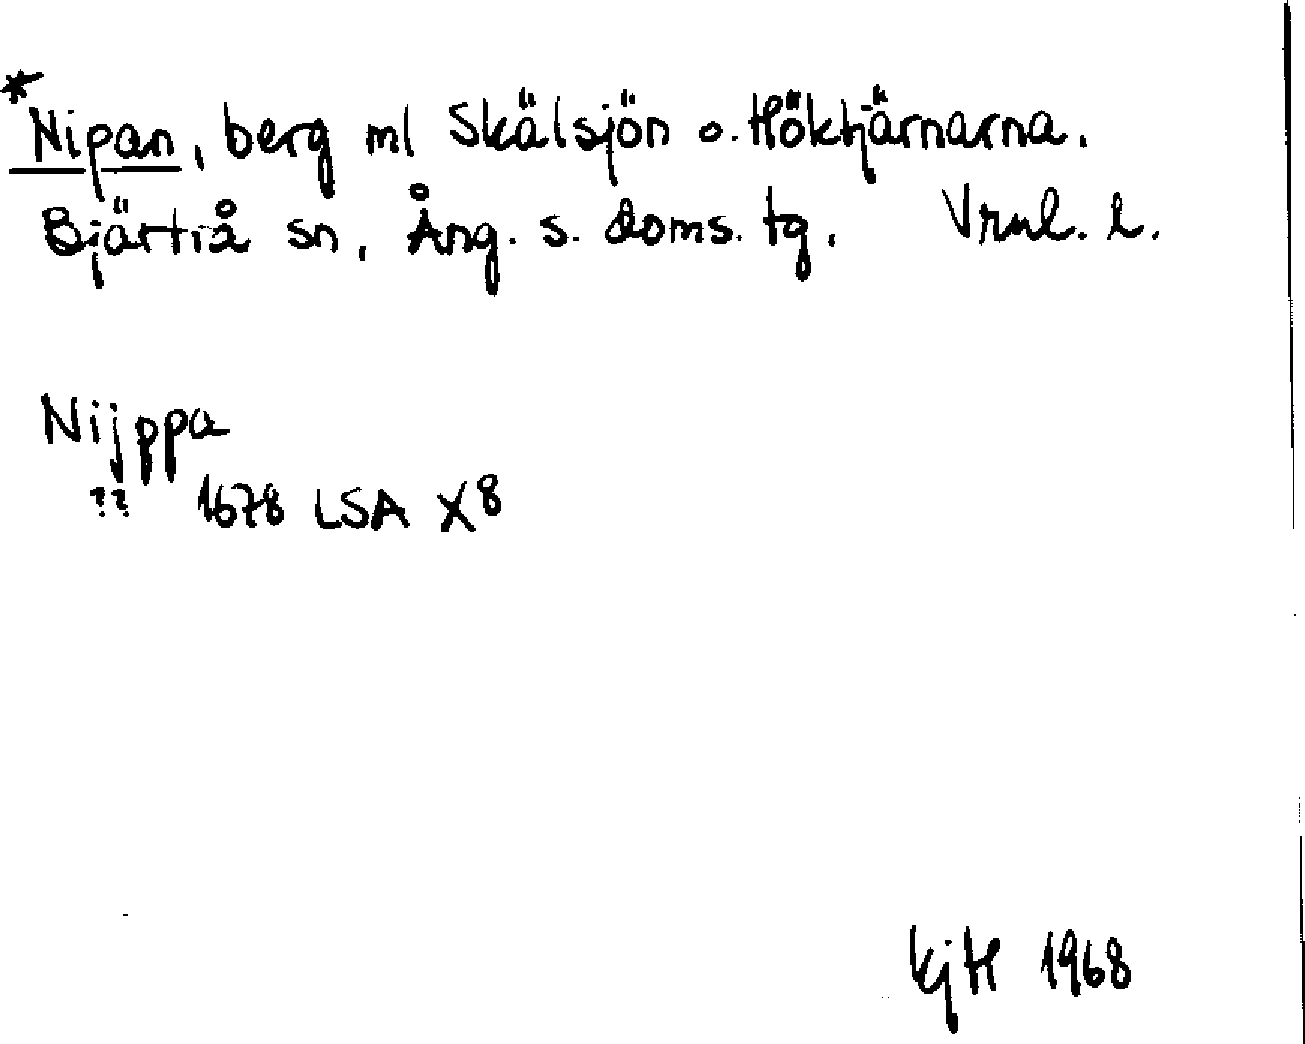 *Nipan, berg ml Skälsjön o. Höktjärnarna.
Bjärtrå sn, Ång. s. doms. tg. Vrul. l.
Nijppa
?? 1678 LSA X8
KjH 1968